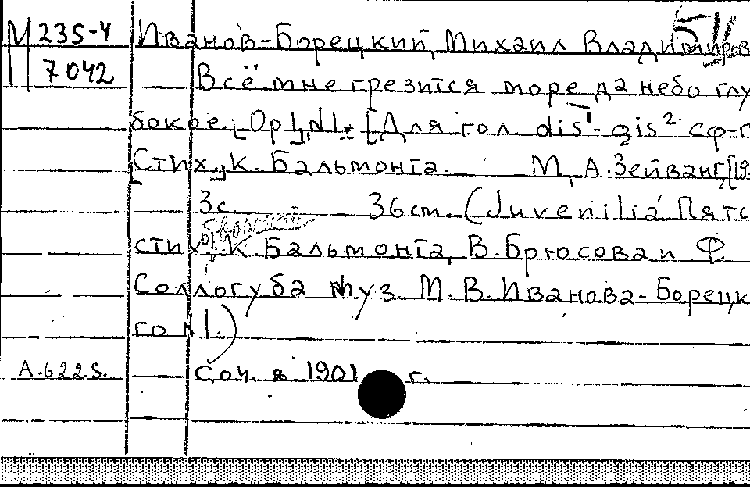 М 235-4 Иванов-Борецкий, Михаил Владимиров
7042 Всё мне грезится море да небо глу
бокое. [Op], N1. [Для гол dis¹-gis² с ф-п
Стих. К. Бальмонта. М., А. Зейванг, [19
3с. 36 cm. (Juvenilia Пять
стих. К. Бальмонта, В. Брюсова и Ф
Соллогуба муз. М. В. Иванова-Борецк
го N1.)
А.6225. Соч. в 1901 г.